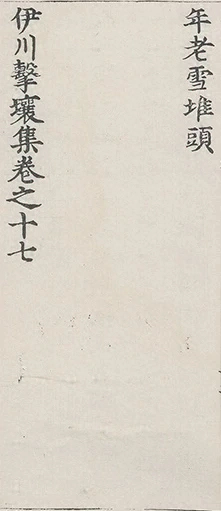 年老雪堆頭
伊川擊壤集卷之十七